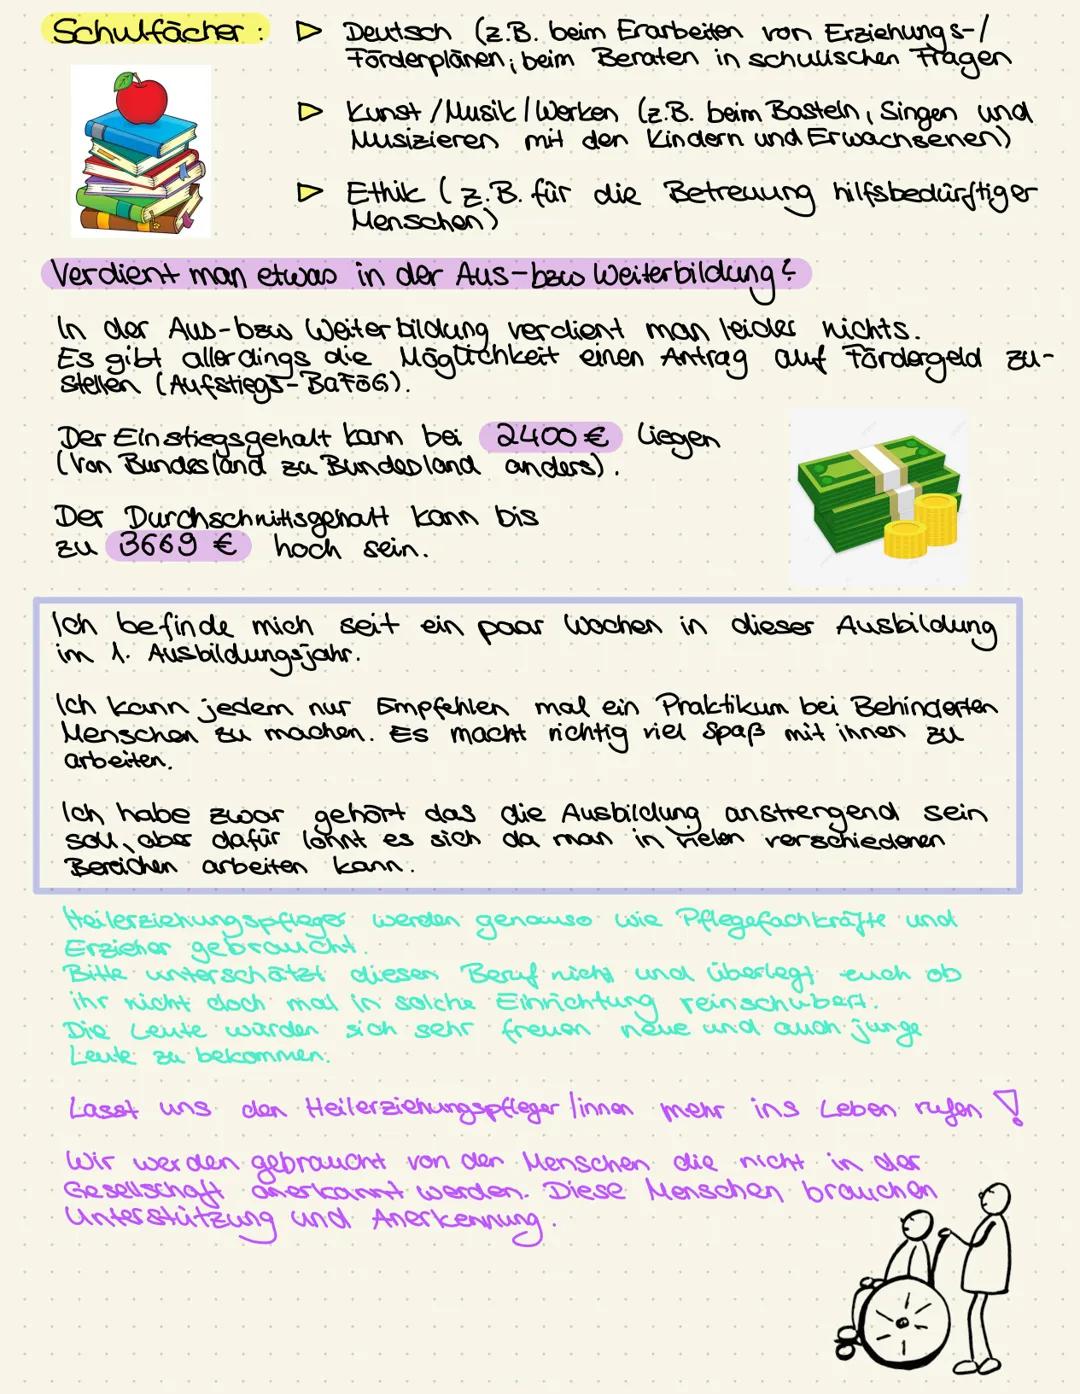 Schulfächer :
▷ Deutsch (z.B. beim Erarbeiten von Erziehungs-/
Förderplänen, beim Beraten in schulischen Fragen
▷ Kunst / Musik / Werken (z.B. beim Basteln, Singen und
Musizieren mit den Kindern und Erwachsenen)
▷ Ethik ( z.B. für die Betreuung hilfsbedürftiger
Menschen)
Verdient man etwas in der Aus-bzw Weiterbildung?
In der Aus-bzw Weiterbildung verdient man leider nichts.
Es gibt allerdings die Möglichkeit einen Antrag auf Fördergeld zu-
stellen (Aufstiegs-BaföG).
Der Einstiegsgehalt kann bei 2400 € liegen
(Von Bundesland zu Bundesland anders).
Der Durchschnittsgehalt kann bis
zu 3669 € hoch sein.
Ich befinde mich seit ein paar Wochen in dieser Ausbildung
im 1. Ausbildungsjahr.
Ich kann jedem nur Empfehlen mal ein Praktikum bei Behinderten
Menschen zu machen. Es macht richtig viel Spaß mit ihnen zu
arbeiten.
Ich habe zwar gehört das die Ausbildung anstrengend sein
soll, aber dafür lohnt es sich da man in vielen verschiedenen
Bereichen arbeiten kann.
Heilerziehungspfleger werden genauso wie Pflegefachkräfte und
Erzieher gebraucht.
Bitte unterschätzt diesen Beruf nicht und überlegt euch ob
ihr nicht doch mal in solche Einrichtung reinschubert.
Die Leute würden sich sehr freuen neue und auch junge
Leute zu bekommen.
Lasst uns den Heilerziehungspfleger/innen mehr ins Leben rufen !
Wir werden gebraucht von den Menschen die nicht in der
Gesellschaft anerkannt werden. Diese Menschen brauchen
Unterstützung und Anerkennung.